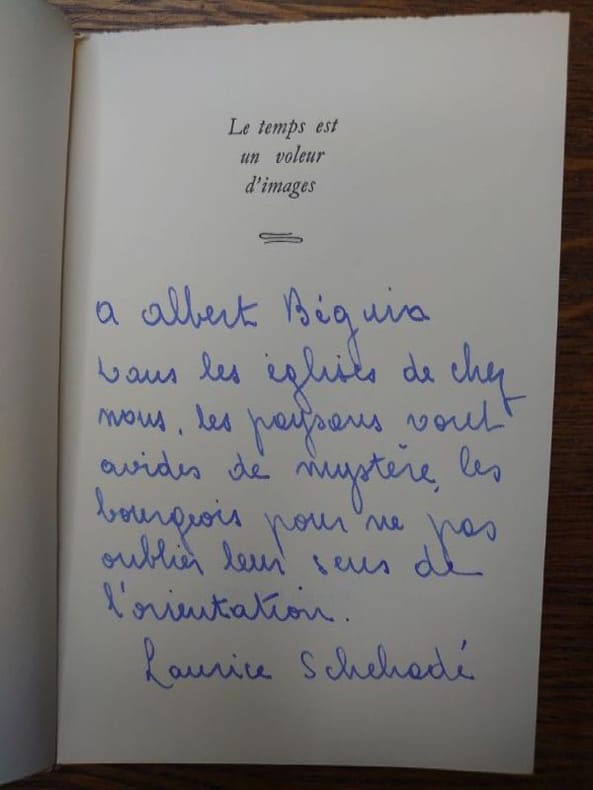 Le temps est
un voleur
d'images
a Albert Béguin
Dans les églises de chez
nous, les paysans vont
avides de mystère, les
bourgeois pour ne pas
oublier leur sens de
l'orientation.
Laurice Schehadé